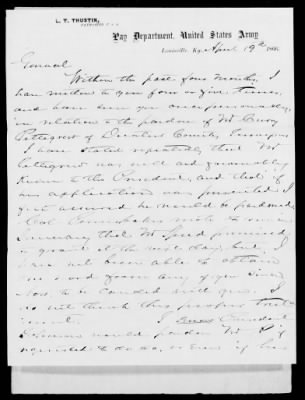 L. T. THUSTIN,
Pay Department, United States Army
Louisville, Ky. April 19th 1866.
General
Within the past four months, I
have written to you four or five times,
and have seen you once personally,
in relation to the pardon of Mr
of County,
I have stated repeatedly that Mr
was well and favorably
Known to the President, and that if
an application was presented I
felt assured he would be pardoned
Col wrote to me in
January that Mr Speed promised
to grant it the next day, but I
have not been able to obtain
one word from any of you since
Now, to be candid with you, I
do not think this proper treat-
ment. I know President
Johnson would pardon Mr P if
requested to do so, or even if his